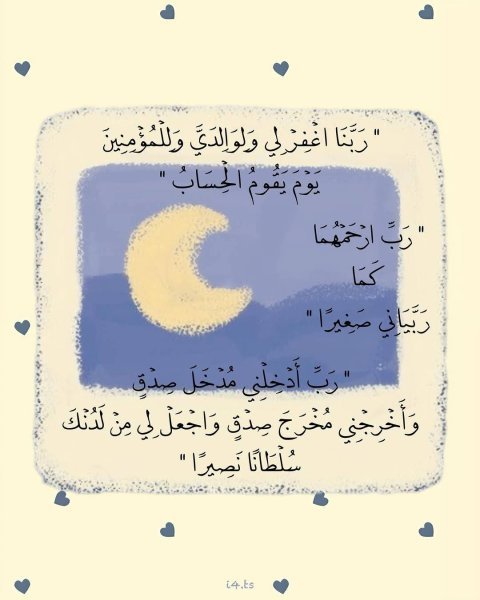 " رَبَّنَا اغْفِرْ لِي وَلِوَالِدَيَّ وَلِلْمُؤْمِنِينَ
يَوْمَ يَقُومُ الْحِسَابُ "
" رَبِّ ارْحَمْهُمَا
كَمَا
رَبَّيَانِي صَغِيرًا "
" رَبِّ أَدْخِلْنِي مُدْخَلَ صِدْقٍ
وَأَخْرِجْنِي مُخْرَجَ صِدْقٍ وَاجْعَلْ لِي مِنْ لَدُنْكَ
سُلْطَانًا نَصِيرًا "
i4.ts